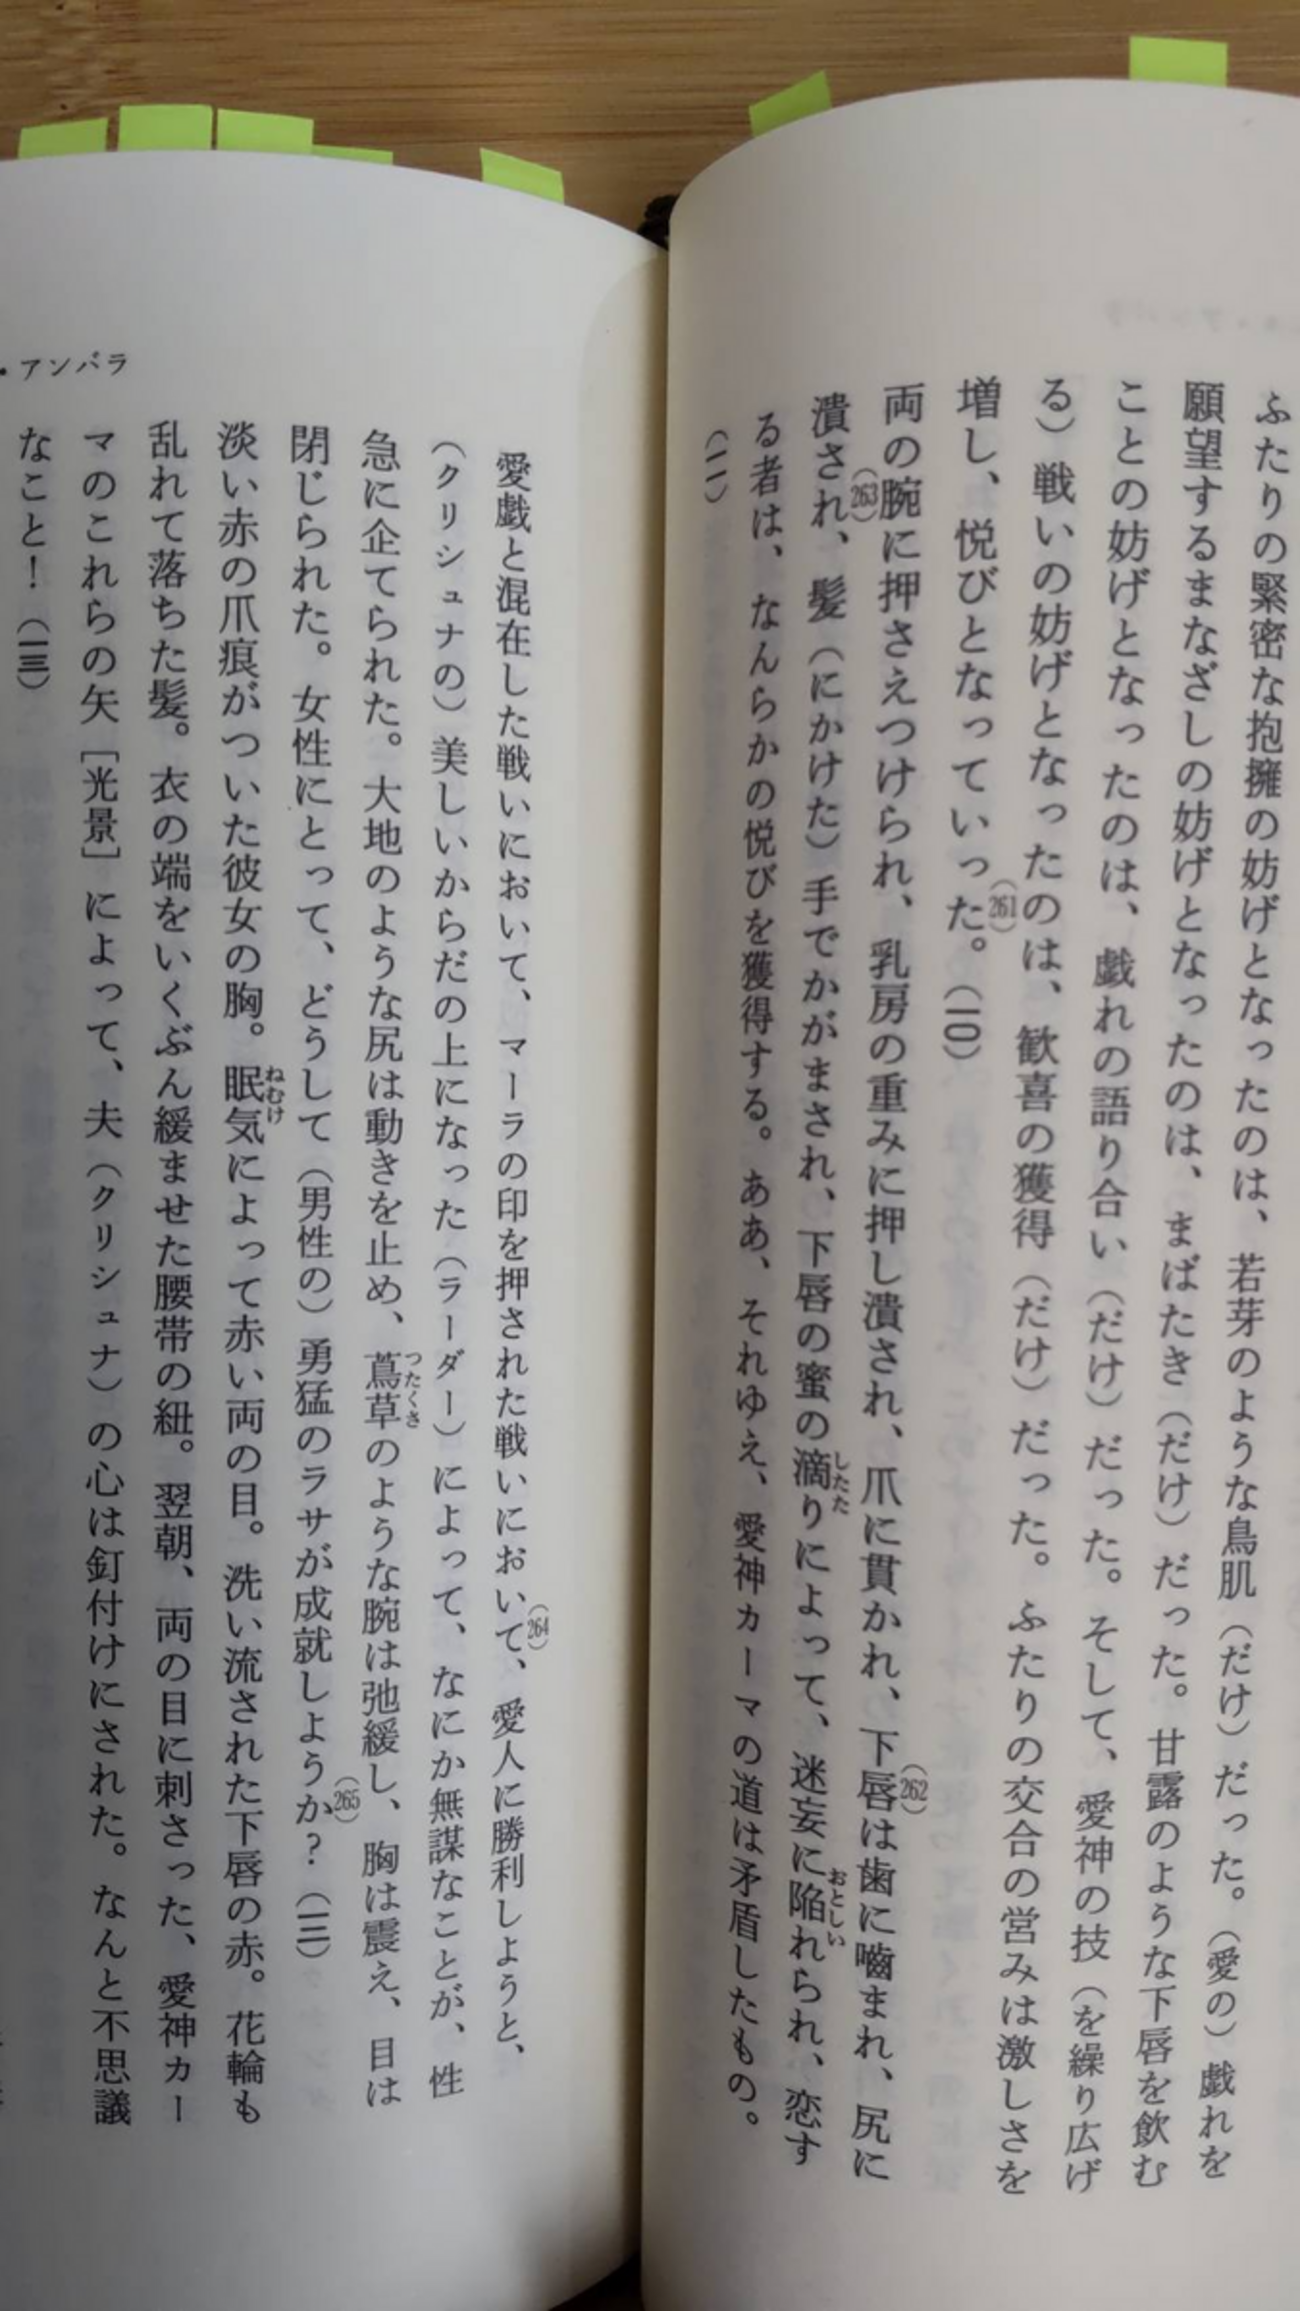 ふたりの緊密な抱擁の妨げとなったのは、若芽のような鳥肌（だけ）だった。（愛の）戯れを
願望するまなざしの妨げとなったのは、まばたき（だけ）だった。甘露のような下唇を飲む
ことの妨げとなったのは、戯れの語り合い（だけ）だった。そして、愛神の技（を繰り広げ
る）戦いの妨げとなったのは、歓喜の獲得（だけ）だった。ふたりの交合の営みは激しさを
増し、悦びとなっていった。(261)（一〇）
両の腕に押さえつけられ、乳房の重みに押し潰され、爪に貫かれ、下唇は歯に嚙まれ、(262)尻に
潰され、(263)髪（にかけた）手でかがまされ、下唇の蜜の滴りによって、迷妄に陥れられ、恋す
る者は、なんらかの悦びを獲得する。ああ、それゆえ、愛神カーマの道は矛盾したもの。
（一一）
・アンバラ
愛戯と混在した戦いにおいて、マーラの印を押された戦いにおいて、(264)愛人に勝利しようと、
（クリシュナの）美しいからだの上になった（ラーダー）によって、なにか無謀なことが、性
急に企てられた。大地のような尻は動きを止め、蔦草のような腕は弛緩し、胸は震え、目は
閉じられた。女性にとって、どうして（男性の）勇猛のラサが成就しようか？(265)（一二）
淡い赤の爪痕がついた彼女の胸。眠気によって赤い両の目。洗い流された下唇の赤。花輪も
乱れて落ちた髪。衣の端をいくぶん緩ませた腰帯の紐。翌朝、両の目に刺さった、愛神カー
マのこれらの矢［光景］によって、夫（クリシュナ）の心は釘付けにされた。なんと不思議
なこと！（一三）